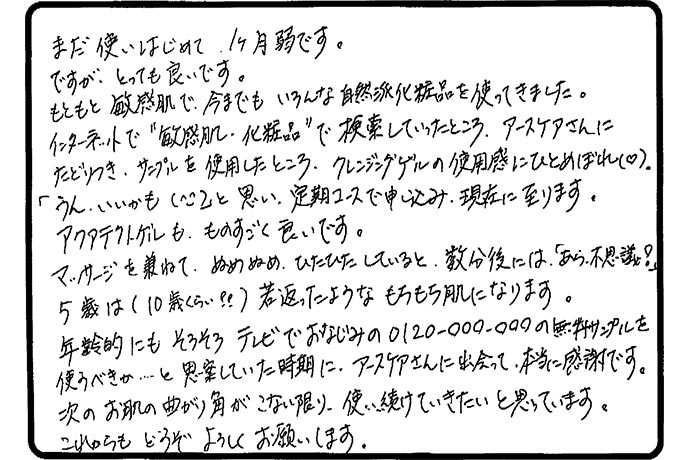 まだ使いはじめて、1ヶ月弱です。
ですが、とっても良いです。
もともと敏感肌で、今までもいろんな自然派化粧品を使ってきました。
インターネットで"敏感肌・化粧品"で検索していったところ、アースケアさんに
たどりつき、サンプルを使用したところ、クレンジングゲルの使用感にひとめぼれ(♡)。
「うん、いいかも(^^)」と思い、定期コースで申し込み、現在に至ります。
アクアテクトゲルも、ものすごく良いです。
マッサージを兼ねて、ぬめぬめ、ひたひたしていると、数分後には、「あら、不思議?」
5歳は(10歳くらい??)若返ったようなもちもち肌になります。
年齢的にもそろそろテレビでおなじみの0120-000-000の無料サンプルを
使うべきか…と思案していた時期に、アースケアさんに出会って、本当に感謝です。
次のお肌の曲がり角がこない限り、使い続けていきたいと思っています。
これからもどうぞよろしくお願いします。